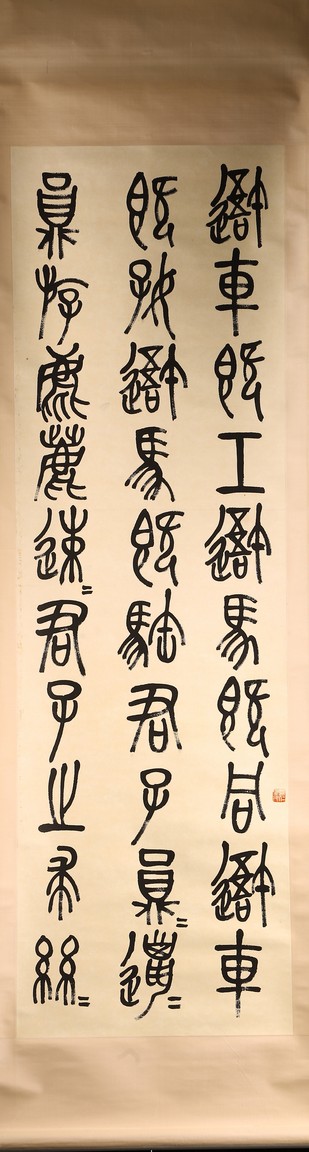 吾車既工吾馬既同吾車
既好吾馬既𩣡君子員=邋=
員斿麀鹿速=君子之求絲=